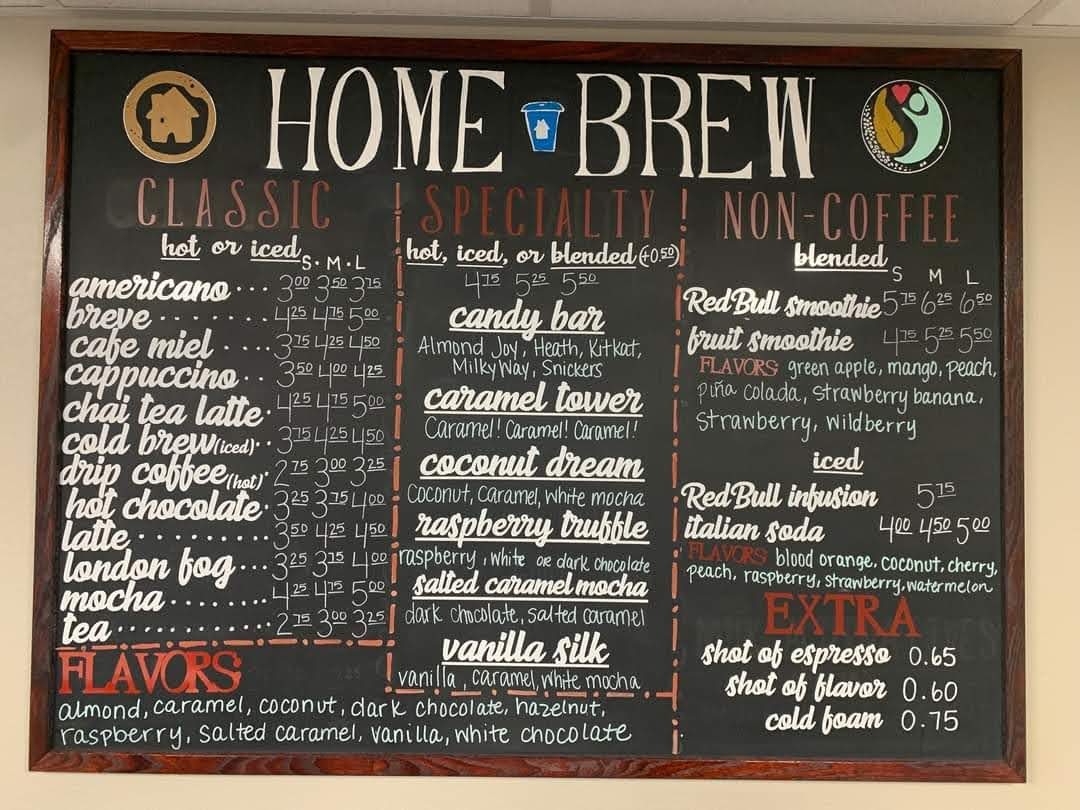 HOME BREW
CLASSIC
hot or iced
S · M · L
americano ··· 3.00 3.50 3.75
breve ········ 4.25 4.75 5.00
cafe miel ···· 3.75 4.25 4.50
cappuccino ·· 3.50 4.00 4.25
chai tea latte · 4.25 4.75 5.00
cold brew (iced) ·· 3.75 4.25 4.50
drip coffee (hot) · 2.75 3.00 3.25
hot chocolate · 3.25 3.75 4.00
latte ·········· 3.50 4.25 4.50
london fog ··· 3.25 3.75 4.00
mocha ······· 4.25 4.75 5.00
tea ··········· 2.75 3.00 3.25
FLAVORS
almond, caramel, coconut, dark chocolate, hazelnut,
raspberry, salted caramel, vanilla, white chocolate
SPECIALTY
hot, iced, or blended (+0.50)
4.75 5.25 5.50
candy bar
Almond Joy, Heath, KitKat,
MilkyWay, Snickers
caramel tower
Caramel! Caramel! Caramel!
coconut dream
Coconut, caramel, white mocha
raspberry truffle
raspberry, white or dark chocolate
salted caramel mocha
dark chocolate, salted caramel
vanilla silk
vanilla, caramel, white mocha
NON-COFFEE
blended
S M L
RedBull smoothie 5.75 6.25 6.50
fruit smoothie 4.75 5.25 5.50
FLAVORS green apple, mango, peach,
piña colada, strawberry banana,
Strawberry, wildberry
iced
RedBull infusion 5.75
italian soda 4.00 4.50 5.00
FLAVORS blood orange, coconut, cherry,
peach, raspberry, strawberry, watermelon
EXTRA
shot of espresso 0.65
shot of flavor 0.60
cold foam 0.75